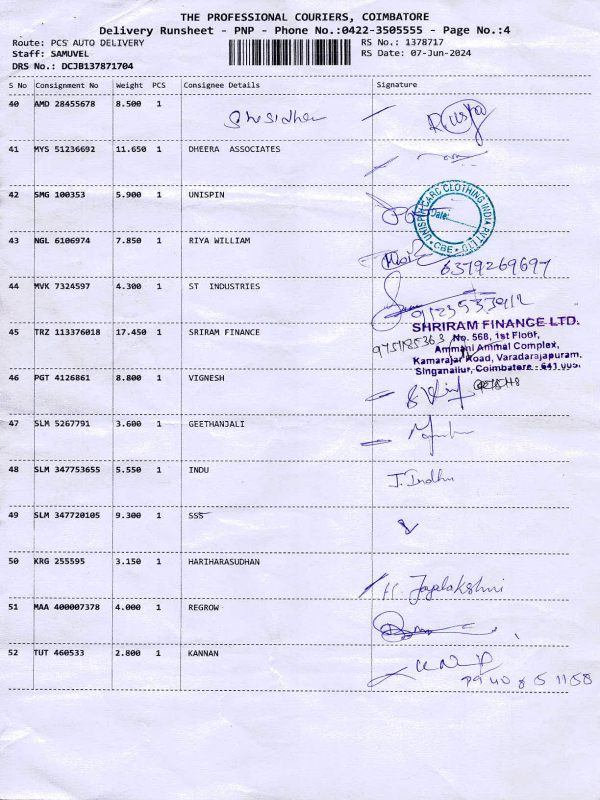 THE PROFESSIONAL COURIERS, COIMBATORE
Delivery Runsheet - PNP - Phone No.:0422-3505555 - Page No.:4
Route: PCS AUTO DELIVERY RS No.: 1378717
Staff: SAMUVEL RS Date: 07-Jun-2024
DRS No.: DCJB137871704
S No Consignment No Weight PCS Consignee Details Signature
40 AMD 28455678 8.500 1
41 MYS 51236692 11.650 1 DHEERA ASSOCIATES
42 SMG 100353 5.900 1 UNISPIN
UNISPIN CARD CLOTHING INDIA PVT LTD
Date:
CBE
43 NGL 6106974 7.850 1 RIYA WILLIAM
6379269697
44 MVK 7324597 4.300 1 ST INDUSTRIES
SHRIRAM FINANCE LTD.
No. 568, 1st Floor,
Ammani Ammal Complex,
Kamarajar Road, Varadarajapuram.
Singanallur, Coimbatore - 641 005.
45 TRZ 113376018 17.450 1 SRIRAM FINANCE
46 PGT 4126861 8.800 1 VIGNESH
47 SLM 5267791 3.600 1 GEETHANJALI
48 SLM 347753655 5.550 1 INDU
J. Indhu
49 SLM 347720105 9.300 1 SSS
50 KRG 255595 3.150 1 HARIHARASUDHAN
H. Jayalakshmi
51 MAA 400007378 4.000 1 REGROW
52 TUT 460533 2.800 1 KANNAN